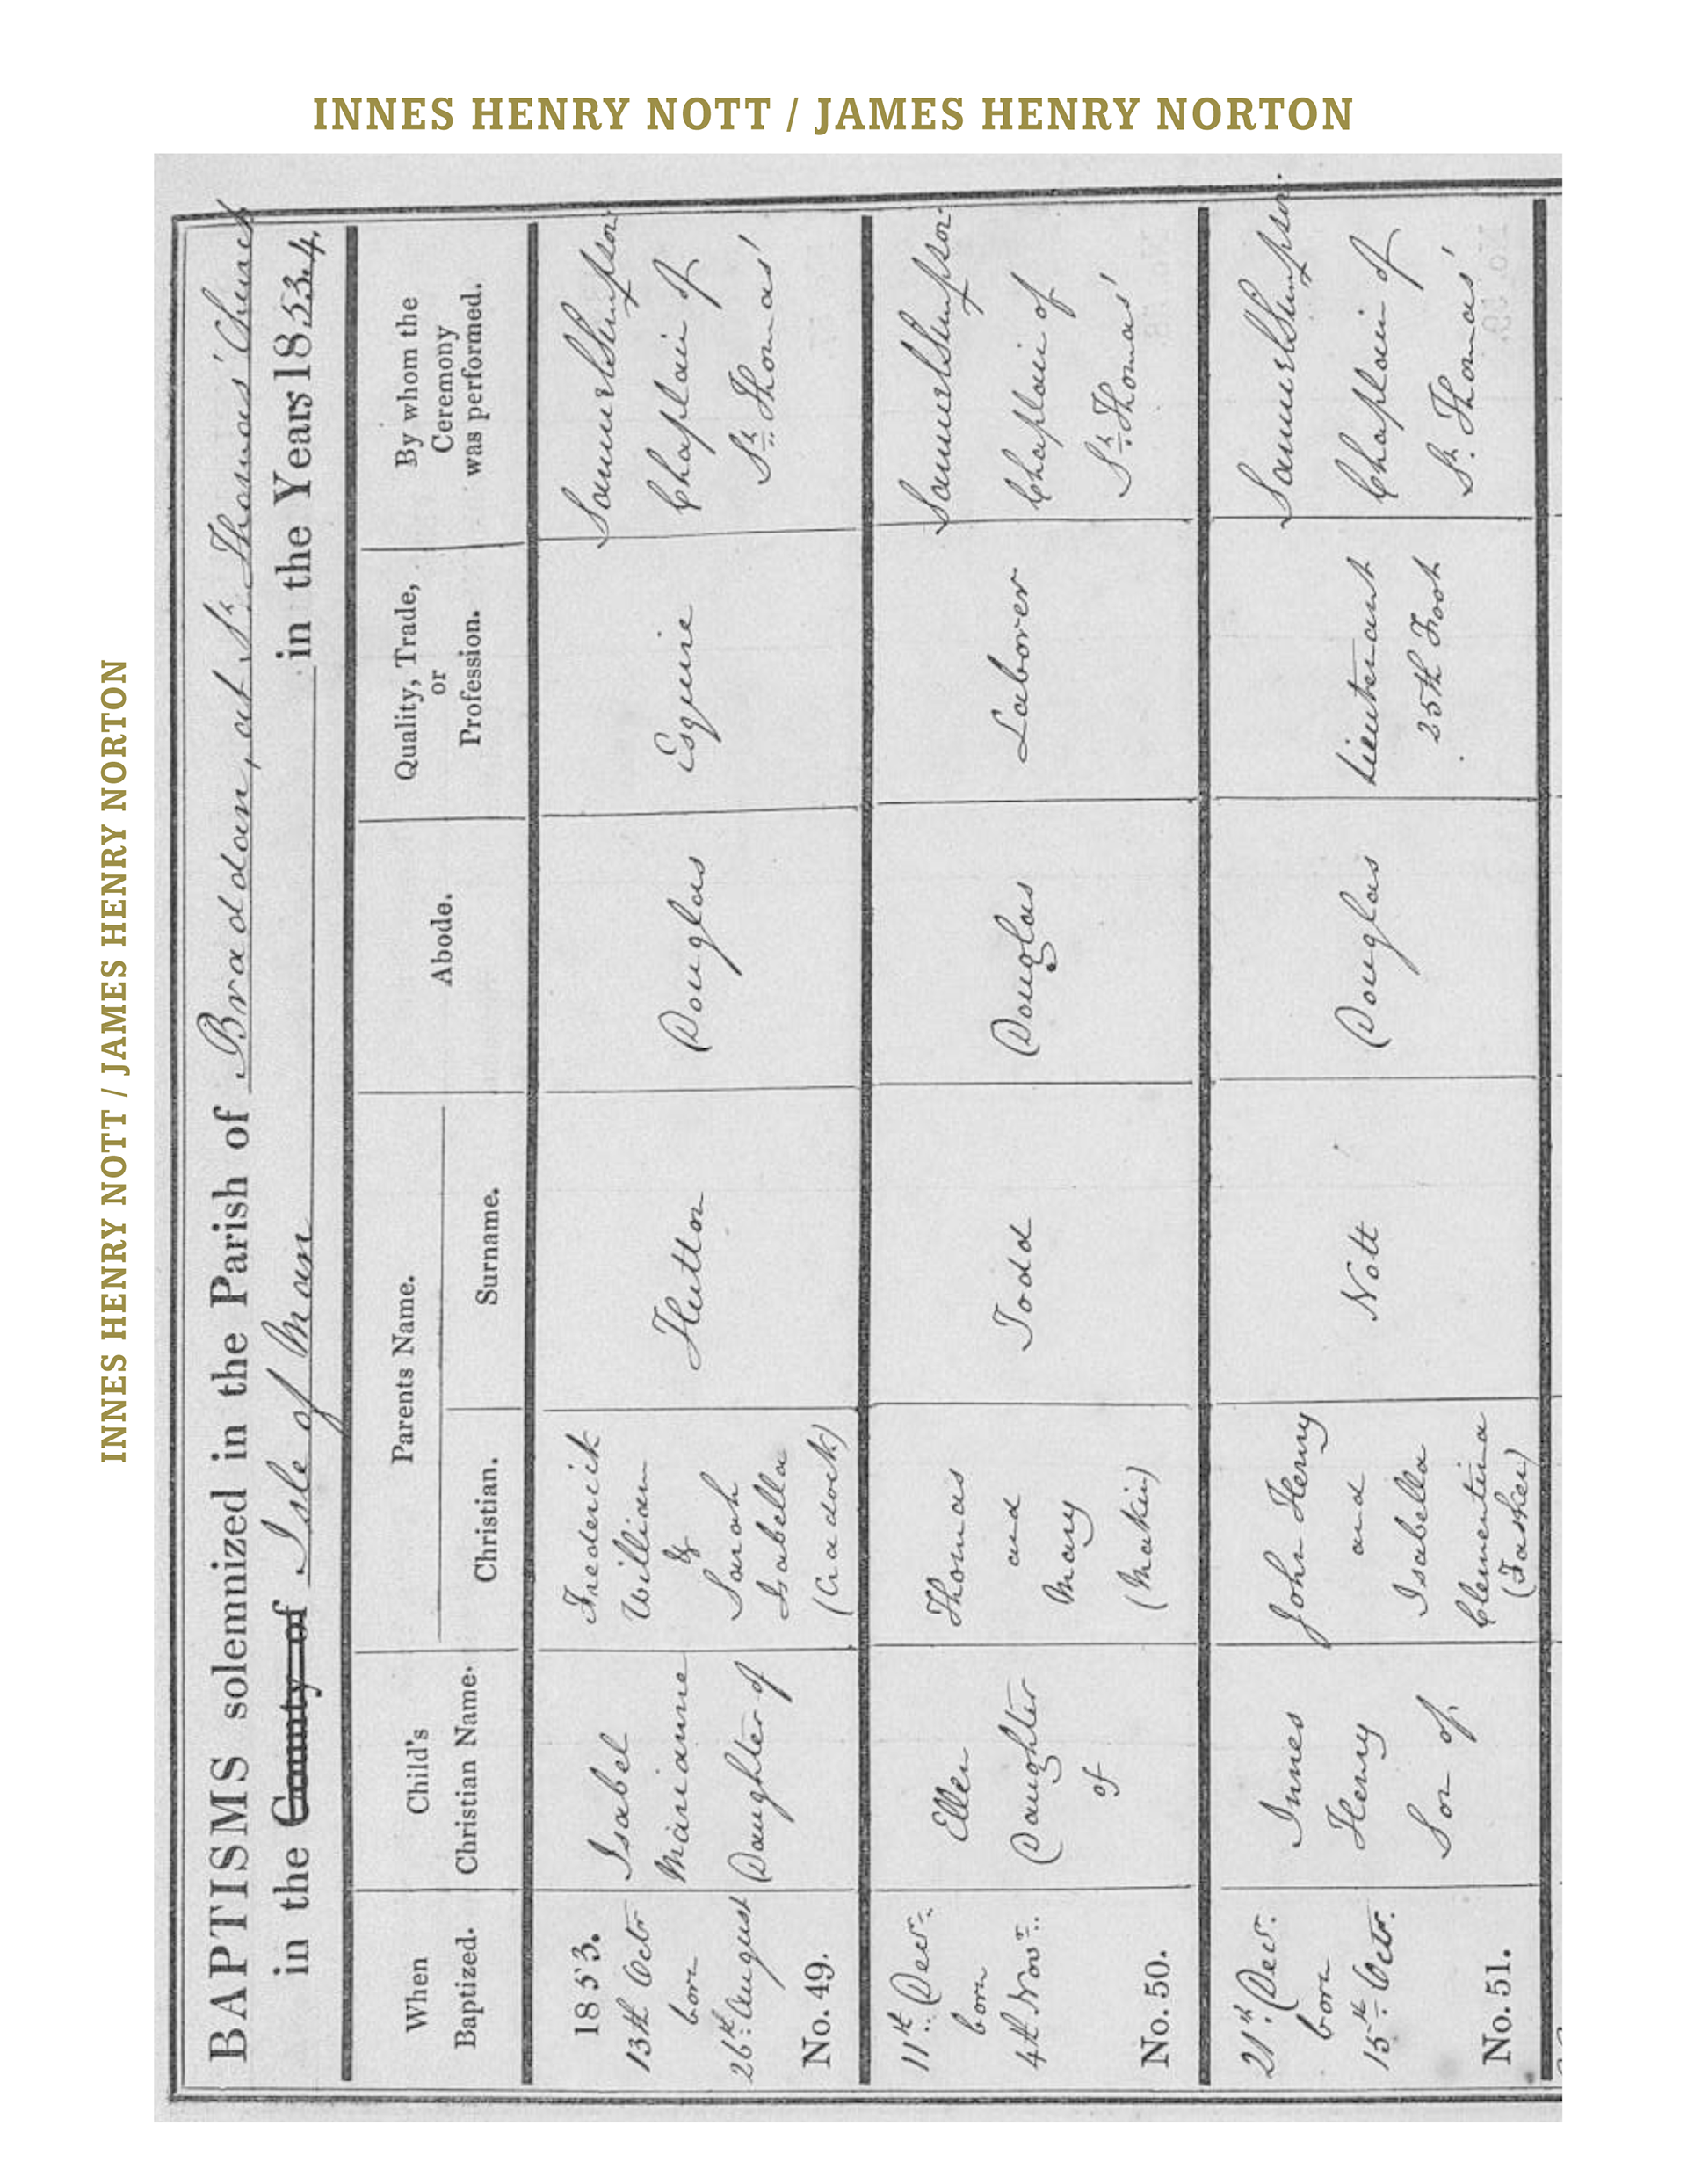 INNES HENRY NOTT / JAMES HENRY NORTON
INNES HENRY NOTT / JAMES HENRY NORTON
BAPTISMS solemnized in the Parish of Braddan, at St. Thomas' Church
in the County of Isle of Man in the Years 1853.4.
When Baptized.
Child's Christian Name.
Parents Name.
Christian.
Surname.
Abode.
Quality, Trade, or Profession.
By whom the Ceremony was performed.
1853.
13th Octr
born
26th August
No. 49.
Isabel
Marianne
Daughter of
Frederick
William
&
Sarah
Isabella
Hutton
Douglas
Esquire
Samuel Simpson
Chaplain of
St. Thomas'
11th Decr.
born
4th Novr.
No. 50.
Ellen
Daughter
of
Thomas
and
Mary
(Makin)
Todd
Douglas
Laborer
Samuel Simpson
Chaplain of
St. Thomas'
21st Decr.
born
15th Octr.
No. 51.
Innes
Henry
Son of
John Henry
and
Isabella
Clementina
Nott
Douglas
Lieutenant
25th Foot
Samuel Simpson
Chaplain of
St. Thomas'